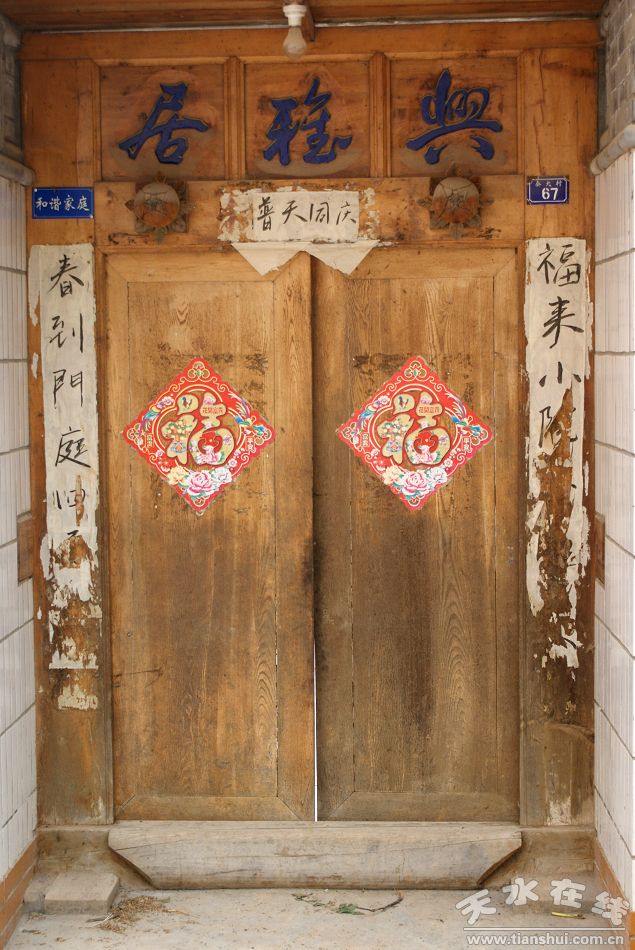 興雅居
和谐家庭
67
普天同庆
福来小院
春到門庭
福
福
天水在线
www.tianshui.com.cn